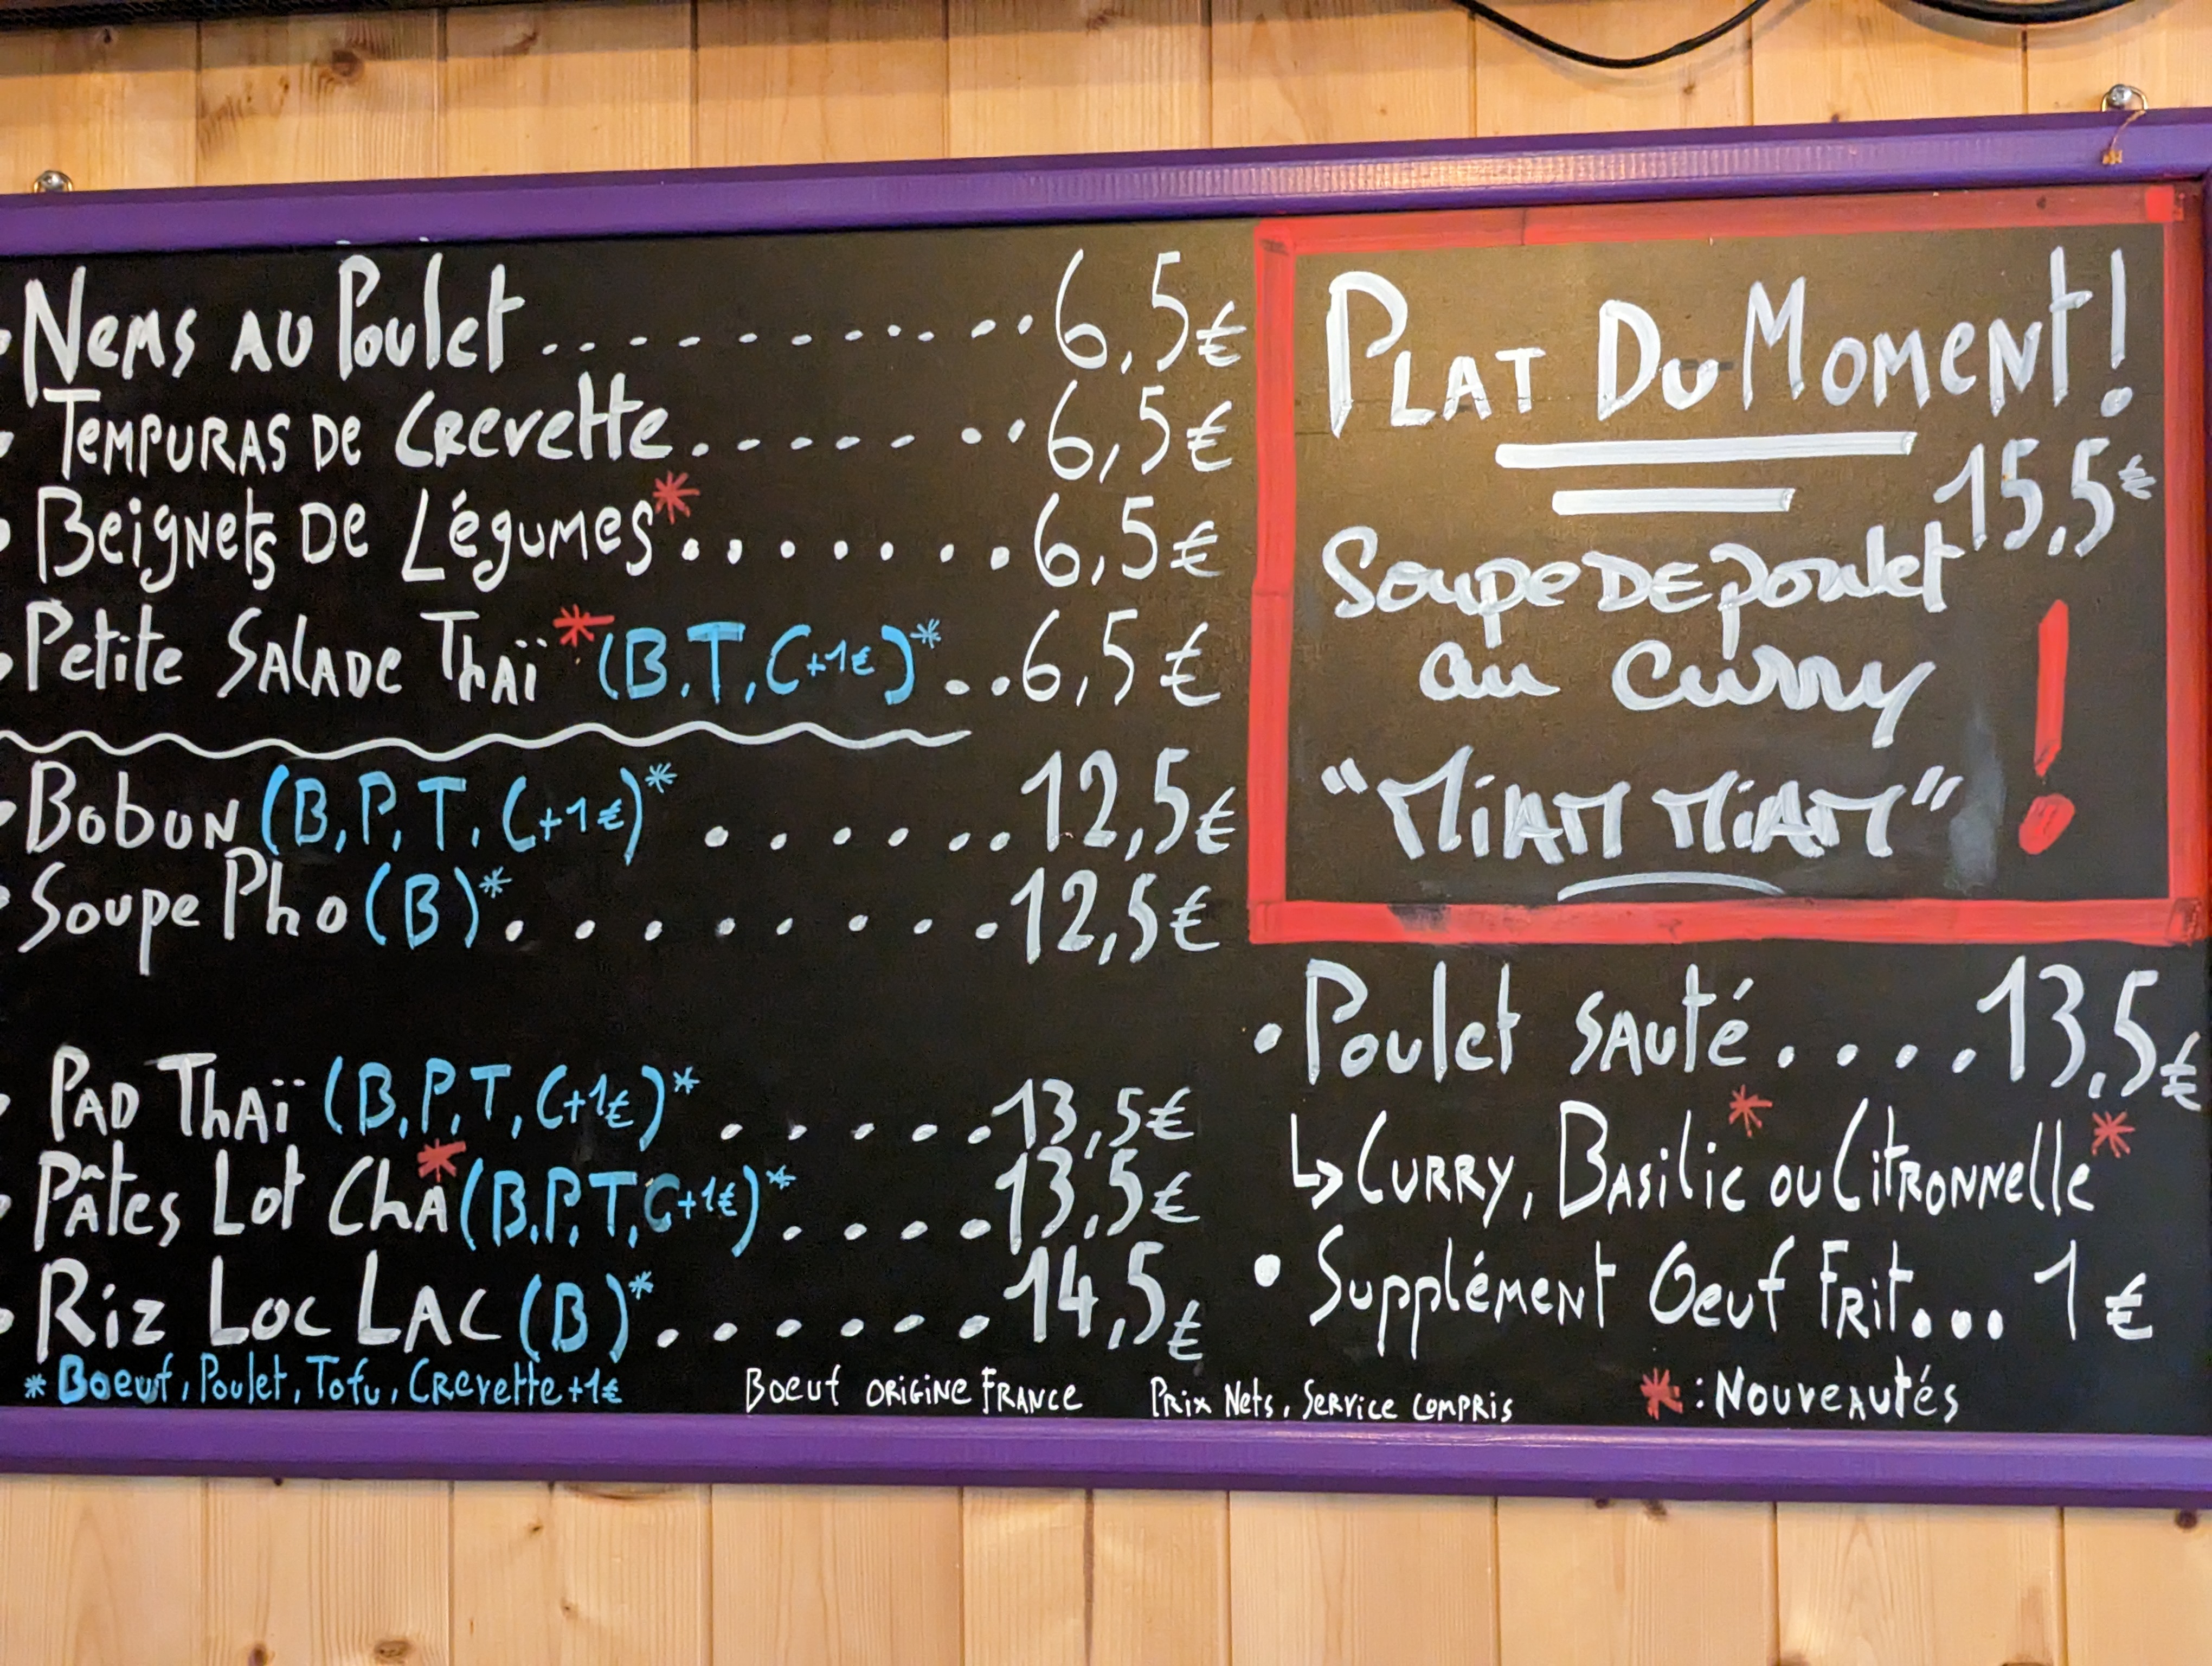 Nems au Poulet.......... 6,5€
Tempuras de Crevette....... 6,5€
Beignets De Légumes*....... 6,5€
Petite Salade Thaï *(B.T,C+1€)*..6,5€
Bobun (B,P,T,C+1€)* ...... 12,5€
Soupe Pho (B)*........12,5€
Pad Thaï (B,P,T,C+1€)* .....13,5€
Pâtes Lot Cha*(B.P,T,C+1€)*....13,5€
Riz Loc Lac (B)*......14,5€
* Boeuf, Poulet, Tofu, Crevette+1€
Boeuf origine France
Prix Nets, Service compris
Plat Du Moment!
15,5€
Soupe De poulet
au Curry
"Miam Miam" !
• Poulet sauté.....13,5€
↳ Curry, Basilic* ou Citronnelle*
• Supplément Oeuf Frit... 1€
* : Nouveautés